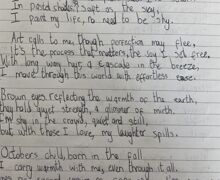 In pastel shades, soft as the sea,
I paint my life, no need to be shy.
Art calls to me, though perfection may flee,
It's the process that matters, the soul I set free.
With long wavy hair, a cascade in the breeze,
I move through this world with effortless ease.
Brown eyes reflecting the warmth of the earth,
They hold quiet strength, a stoner's mirth.
I'm shy in the crowd, quiet and still,
but with those I love, my laughter spills.
October's child, born in the fall
I carry warmth with me, even through it all.